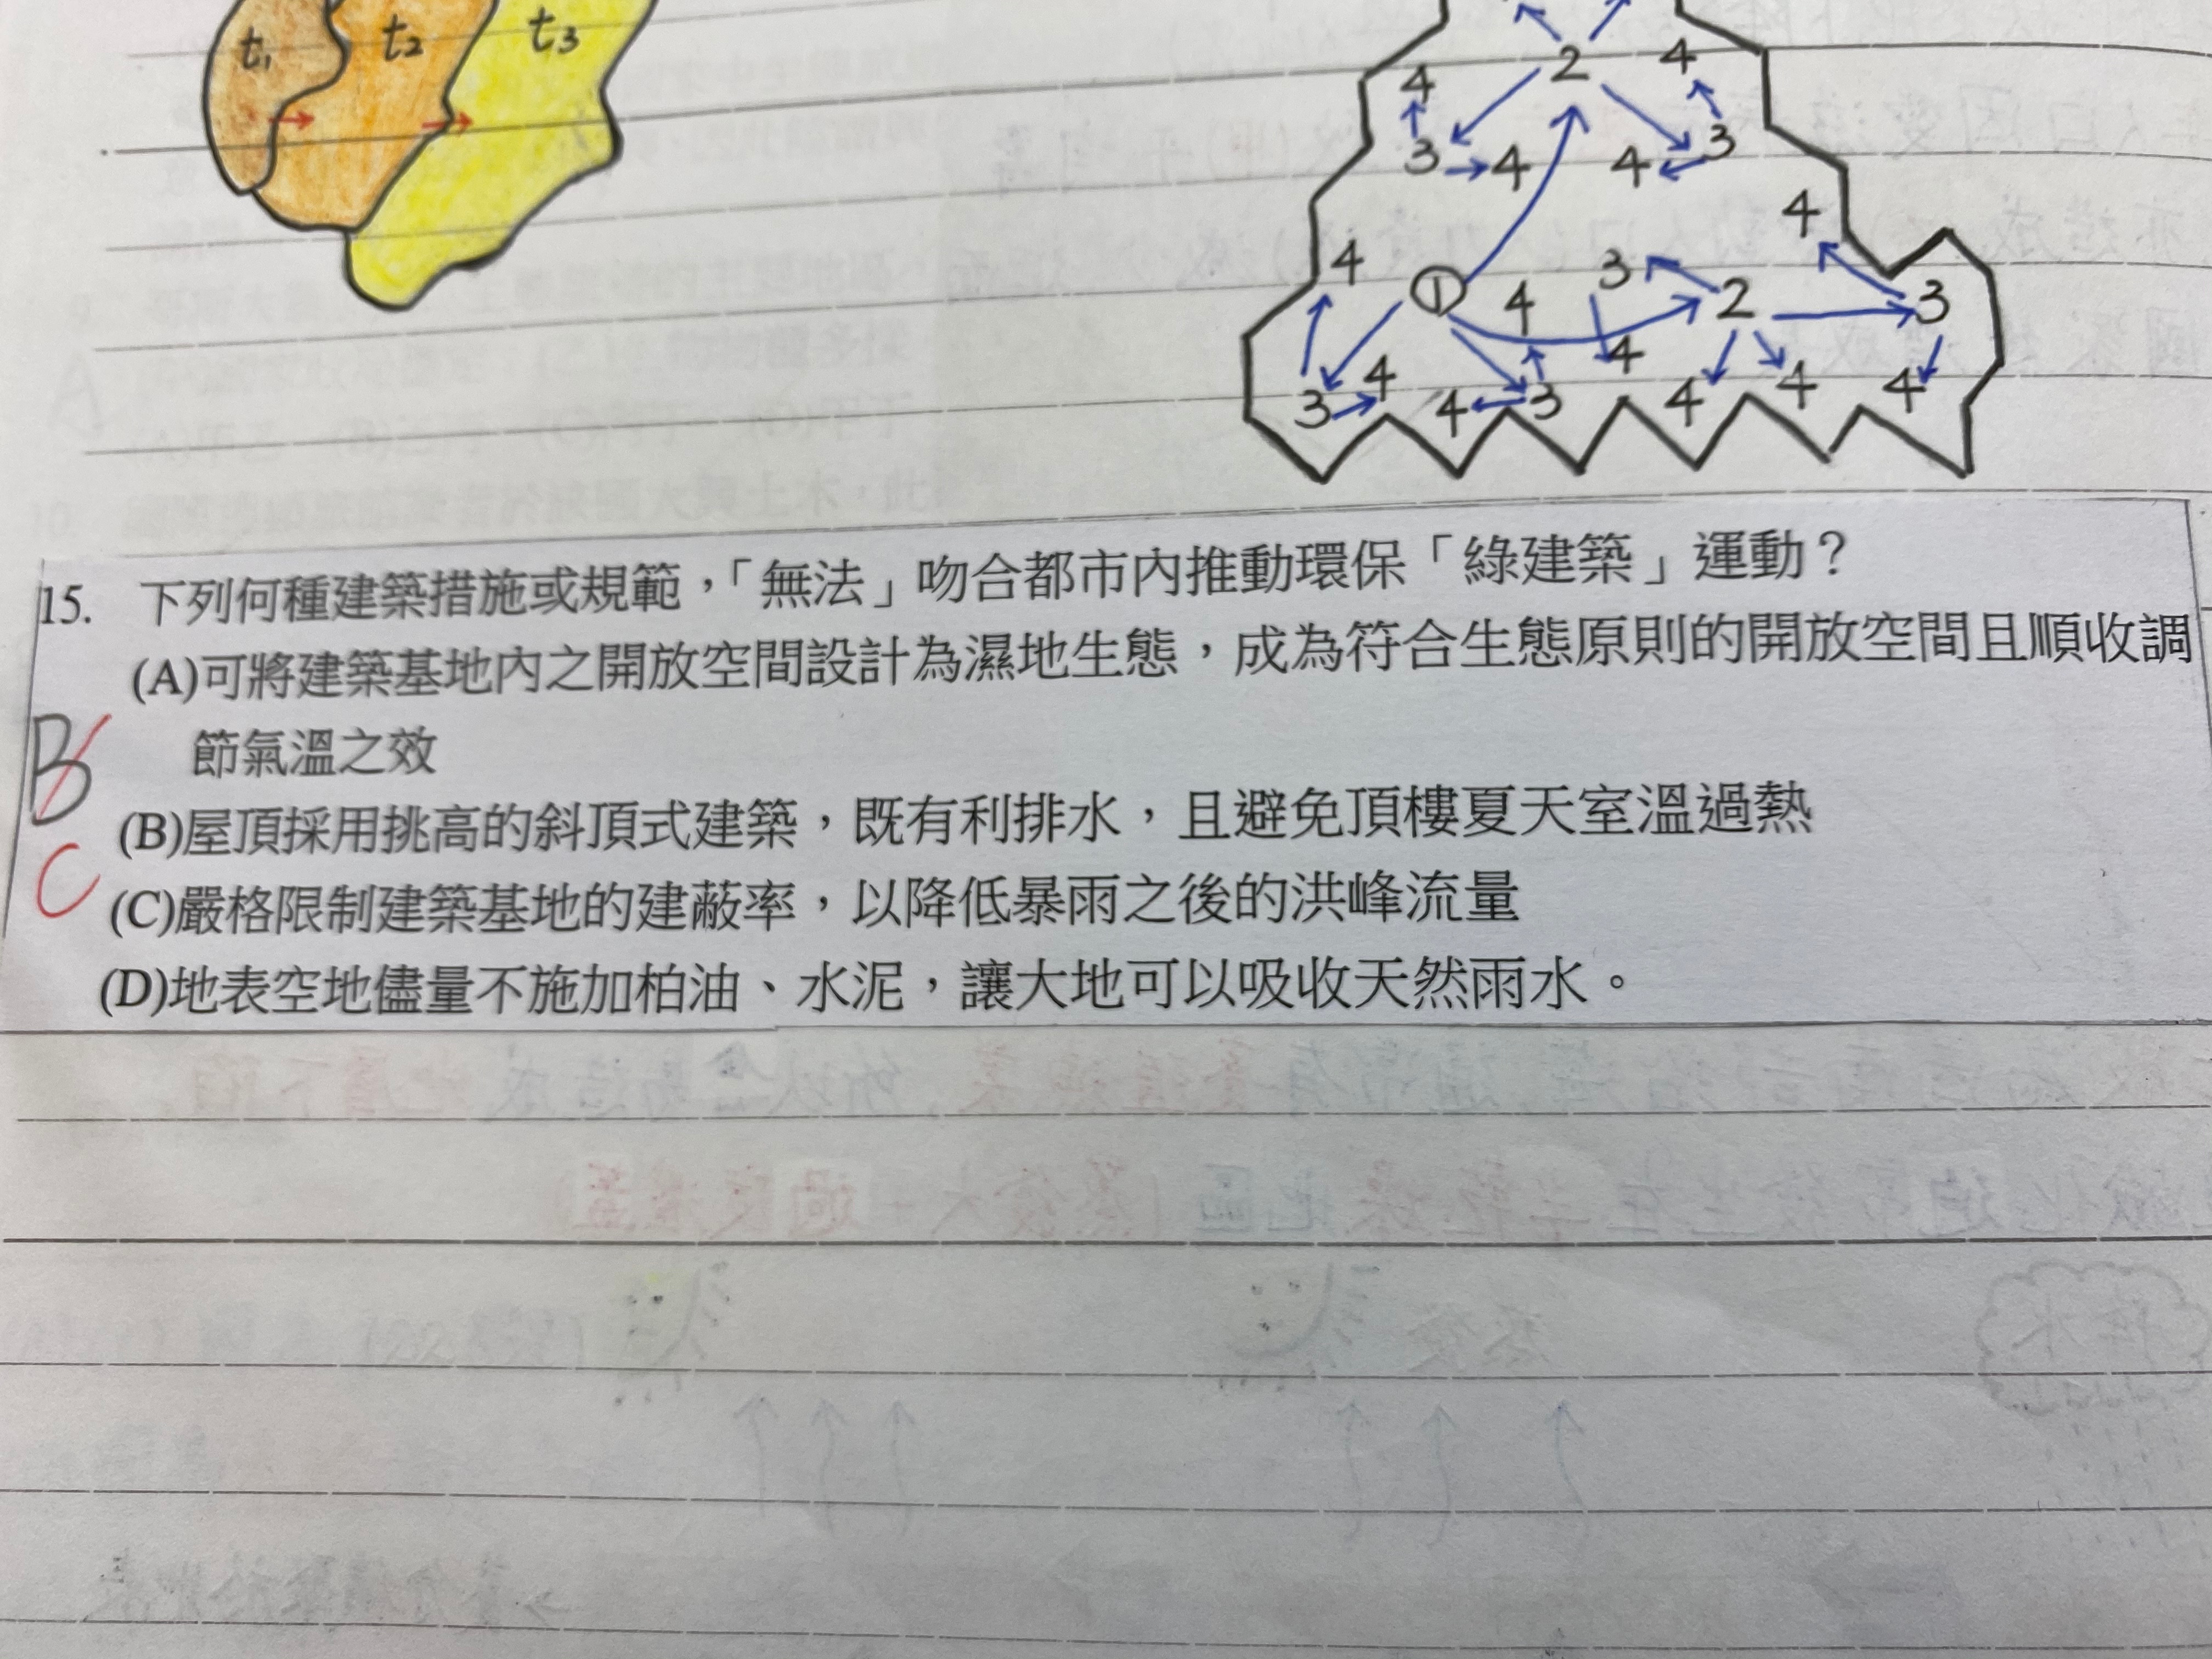 t₁ t₂ t₃
2 4
4
3 4 4 3
4
4 ① 4 3 2 3
4
3 4 4 3 4 4 4
15. 下列何種建築措施或規範，「無法」吻合都市內推動環保「綠建築」運動？
(A)可將建築基地內之開放空間設計為濕地生態，成為符合生態原則的開放空間且順收調
節氣溫之效
B
(B)屋頂採用挑高的斜頂式建築，既有利排水，且避免頂樓夏天室溫過熱
C
(C)嚴格限制建築基地的建蔽率，以降低暴雨之後的洪峰流量
(D)地表空地儘量不施加柏油、水泥，讓大地可以吸收天然雨水。